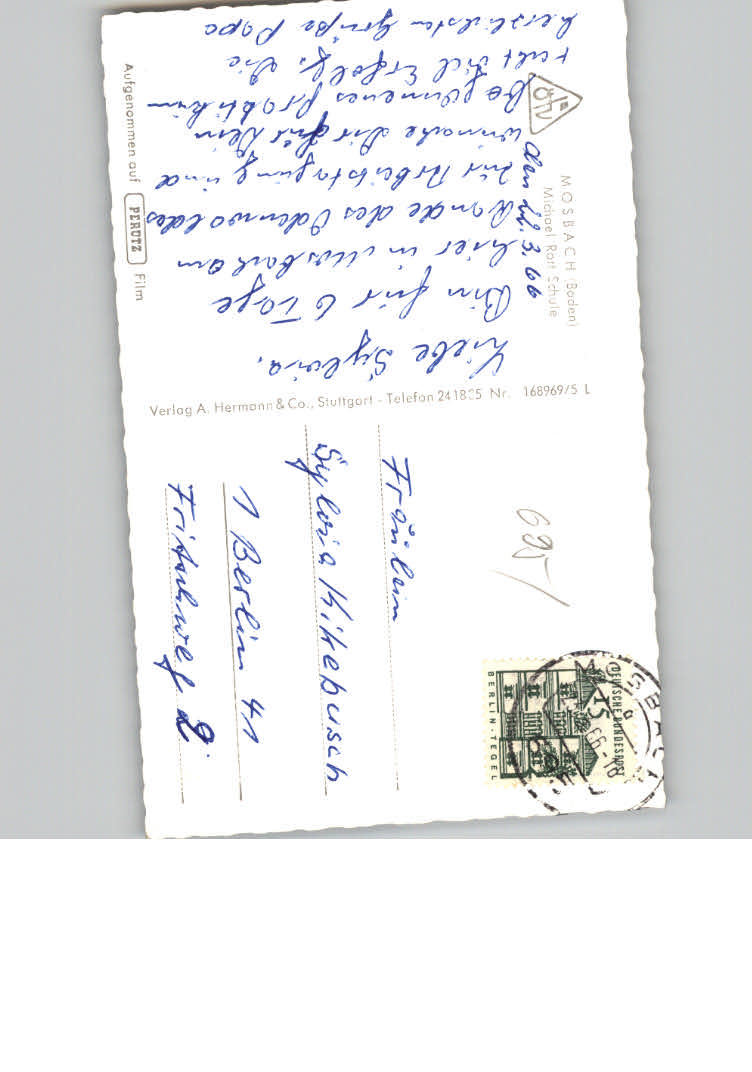 MOSBACH (Baden)
Michael Rott Schule
den 29. 3. 66
Liebe Sylvia,
Bin für 6 Tage
hier in Mosbach am
Rande des Odenwaldes
zur Arbeitstagung und
wünsche Dir für Dein
begonnenes Praktikum
recht viel Erfolg. Die
herzlichsten Grüße Papa
Aufgenommen auf PERUTZ Film
Verlag A. Hermann & Co., Stuttgart - Telefon 241835 Nr. 168969/5 L
695/
DEUTSCHE BUNDESPOST
15
BERLIN-TEGEL
MOSBACH
Fräulein
Sylvia Kikebusch
1 Berlin 41
Fritschweg 2